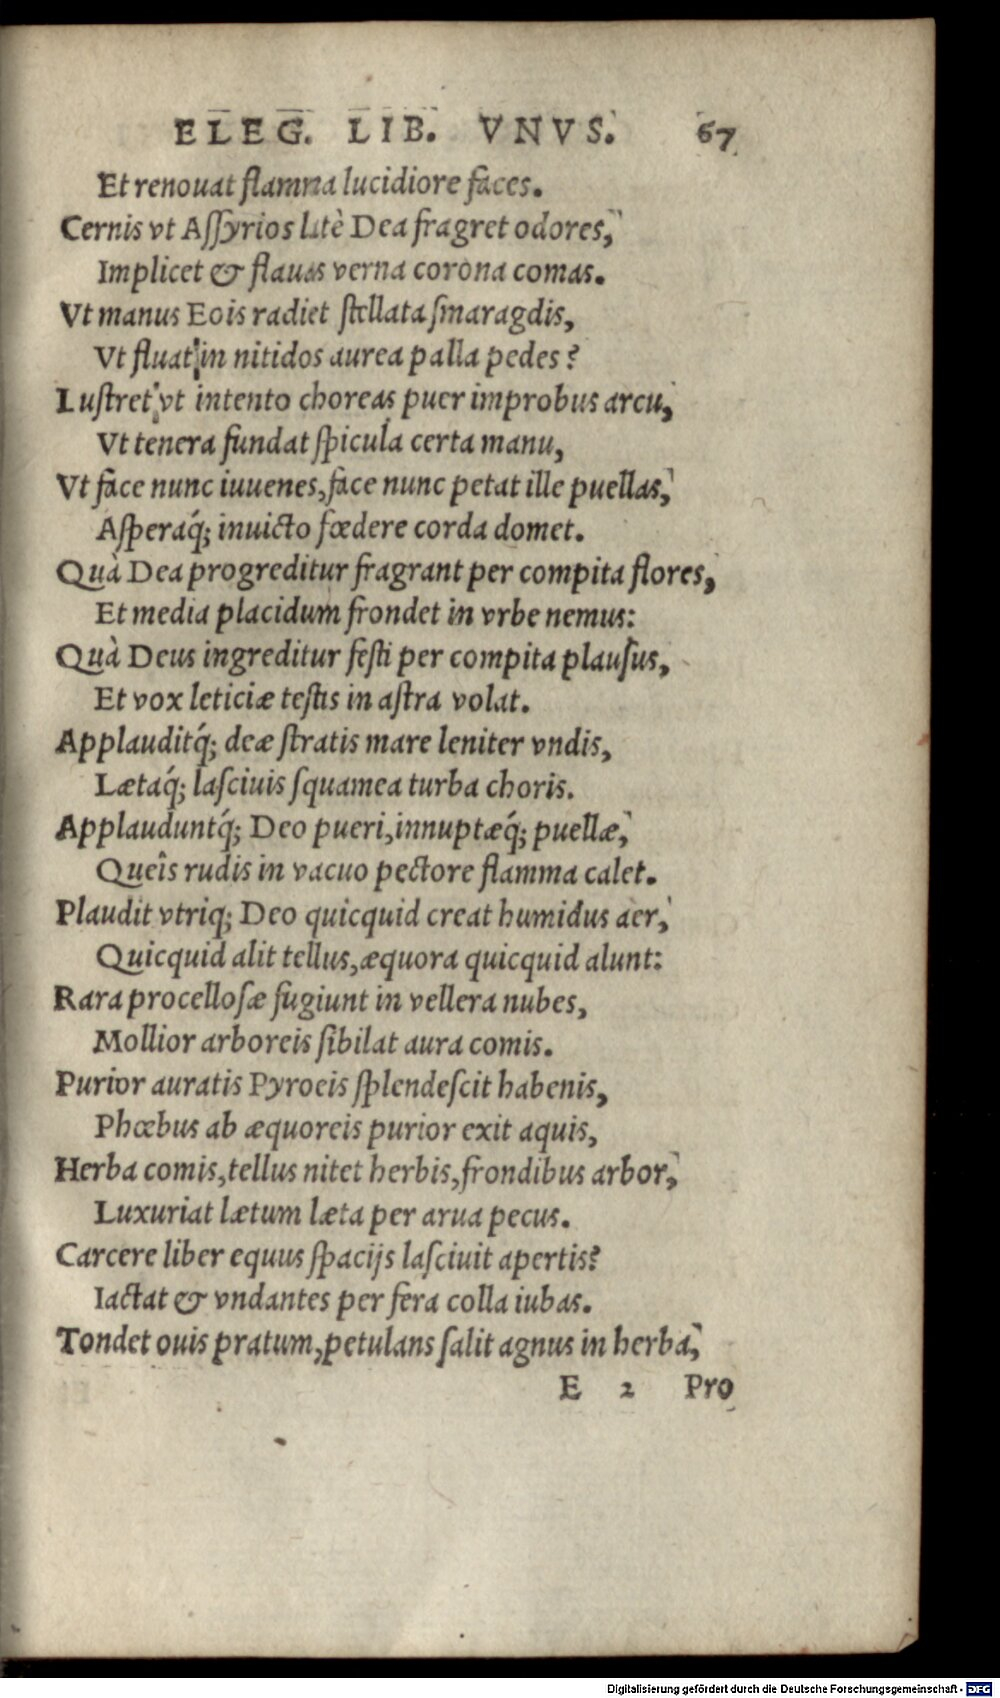 ELEG. LIB. VNVS. 67
Et renouat flamma lucidiore faces.
Cernis vt Aſſyrios latè Dea fragret odores,
Implicet & flauas verna corona comas.
Vt manus Eois radiet ſtellata ſmaragdis,
Vt fluat in nitidos aurea palla pedes?
Luſtret vt intento choreas puer improbus arcu,
Vt tenera fundat ſpicula certa manu,
Vt face nunc iuuenes, face nunc petat ille puellas,
Aſperaq́; inuicto fœdere corda domet.
Quà Dea progreditur fragrant per compita flores,
Et media placidum frondet in vrbe nemus:
Quà Deus ingreditur feſti per compita plauſus,
Et vox leticiæ teſtis in aſtra volat.
Applauditq́; deæ ſtratis mare leniter vndis,
Lætaq́; laſciuis ſquamea turba choris.
Applauduntq́; Deo pueri, innuptæq́; puellæ,
Queîs rudis in vacuo pectore flamma calet.
Plaudit vtriq; Deo quicquid creat humidus aer,
Quicquid alit tellus, æquora quicquid alunt:
Rara procelloſæ fugiunt in vellera nubes,
Mollior arboreis ſibilat aura comis.
Purior auratis Pyroeis ſplendeſcit habenis,
Phœbus ab æquoreis purior exit aquis,
Herba comis, tellus nitet herbis, frondibus arbor,
Luxuriat lætum læta per arua pecus.
Carcere liber equus ſpacijs laſciuit apertis?
Iactat & vndantes per fera colla iubas.
Tondet ouis pratum, petulans ſalit agnus in herba,
E 2 Pro
Digitalisierung gefördert durch die Deutsche Forschungsgemeinschaft - DFG